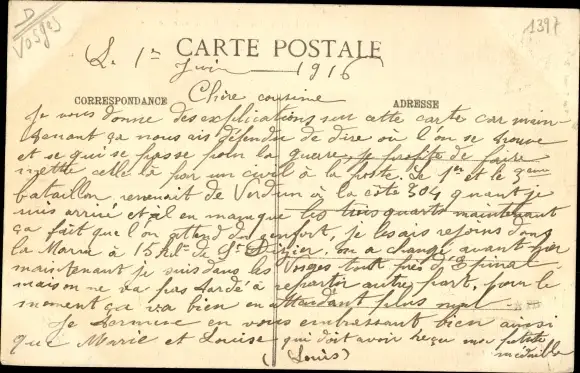 D
Vosges
1397
CARTE POSTALE
Le 1er Juin 1916
CORRESPONDANCE
ADRESSE
Chère cousine
Je vous donne des explications sur cette carte car main-
tenant ça nous ais défendue de dire où l'on se trouve
et se qui se passe pour la guerre, je profite de faire
mettre celle là par un civil à la poste. Le 1er et le 3eme
bataillon, revenait de Verdun à la côte 304 quant je
suis arrivé et al en manque les trois quarts maintenant
ça fait que l'on attend du renfort, je les ais rejoins dans
la Marne à 15 kil. de St Dizier. on a changé avant hier
maintenant je suis dans les Vosges tout près d'Epinal
mais on ne va pas tardé à repartir autre part, pour le
moment ça va bien en attendant plus mal.
Je termine en vous embrassant bien ainsi
que Marie et Louise qui doit avoir reçu ma petite
médaille
(Louis)